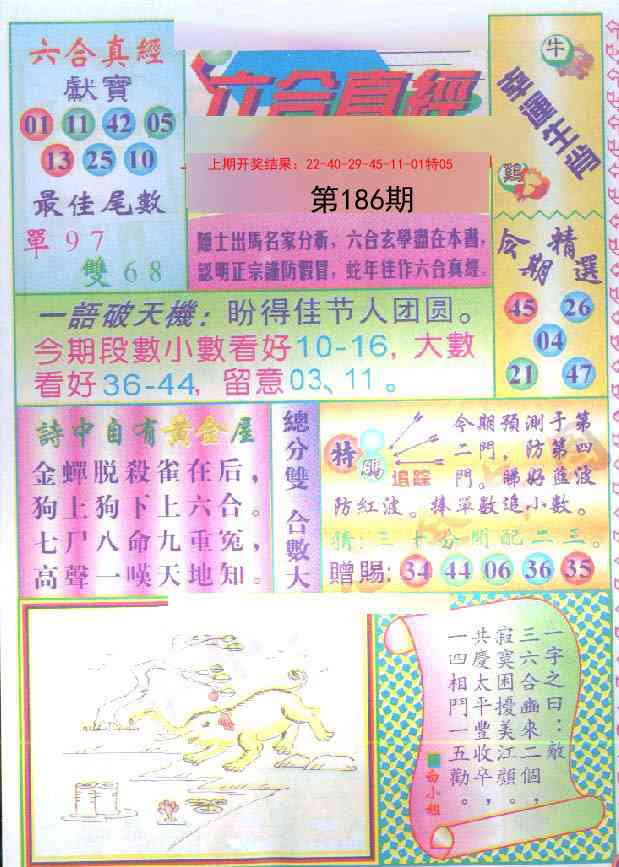 六合真經
獻寶
01 11 42 05
13 25 10
最佳尾數
單97
雙68
六合真經
上期开奖结果：22-40-29-45-11-01特05
第186期
隱士出馬名家分析，六合玄學盡在本書，
認明正宗謹防假冒，蛇年佳作六合真經。
牛
幸運生肖
鷄
今期
精選
45 26
04
21 47
一語破天機：盼得佳节人团圆。
今期段數小數看好10-16，大數
看好36-44，留意03、11。
詩中自有黃金屋
金蟬脱殺雀在后，
狗上狗下上六合。
七尸八命九重冤，
高聲一嘆天地知。
總分雙
合數大
特
追踪
今期預測于第
二門，防第四
門。睇好藍波
防紅波。捧單數追小數。
猜：三十分開配二三。
贈賜：34 44 06 36 35
一字之曰：敵
三六合幽來二個
寂寞困擾美江頭，
共慶太平豐收卒，
一四相門一五勸。
白小姐